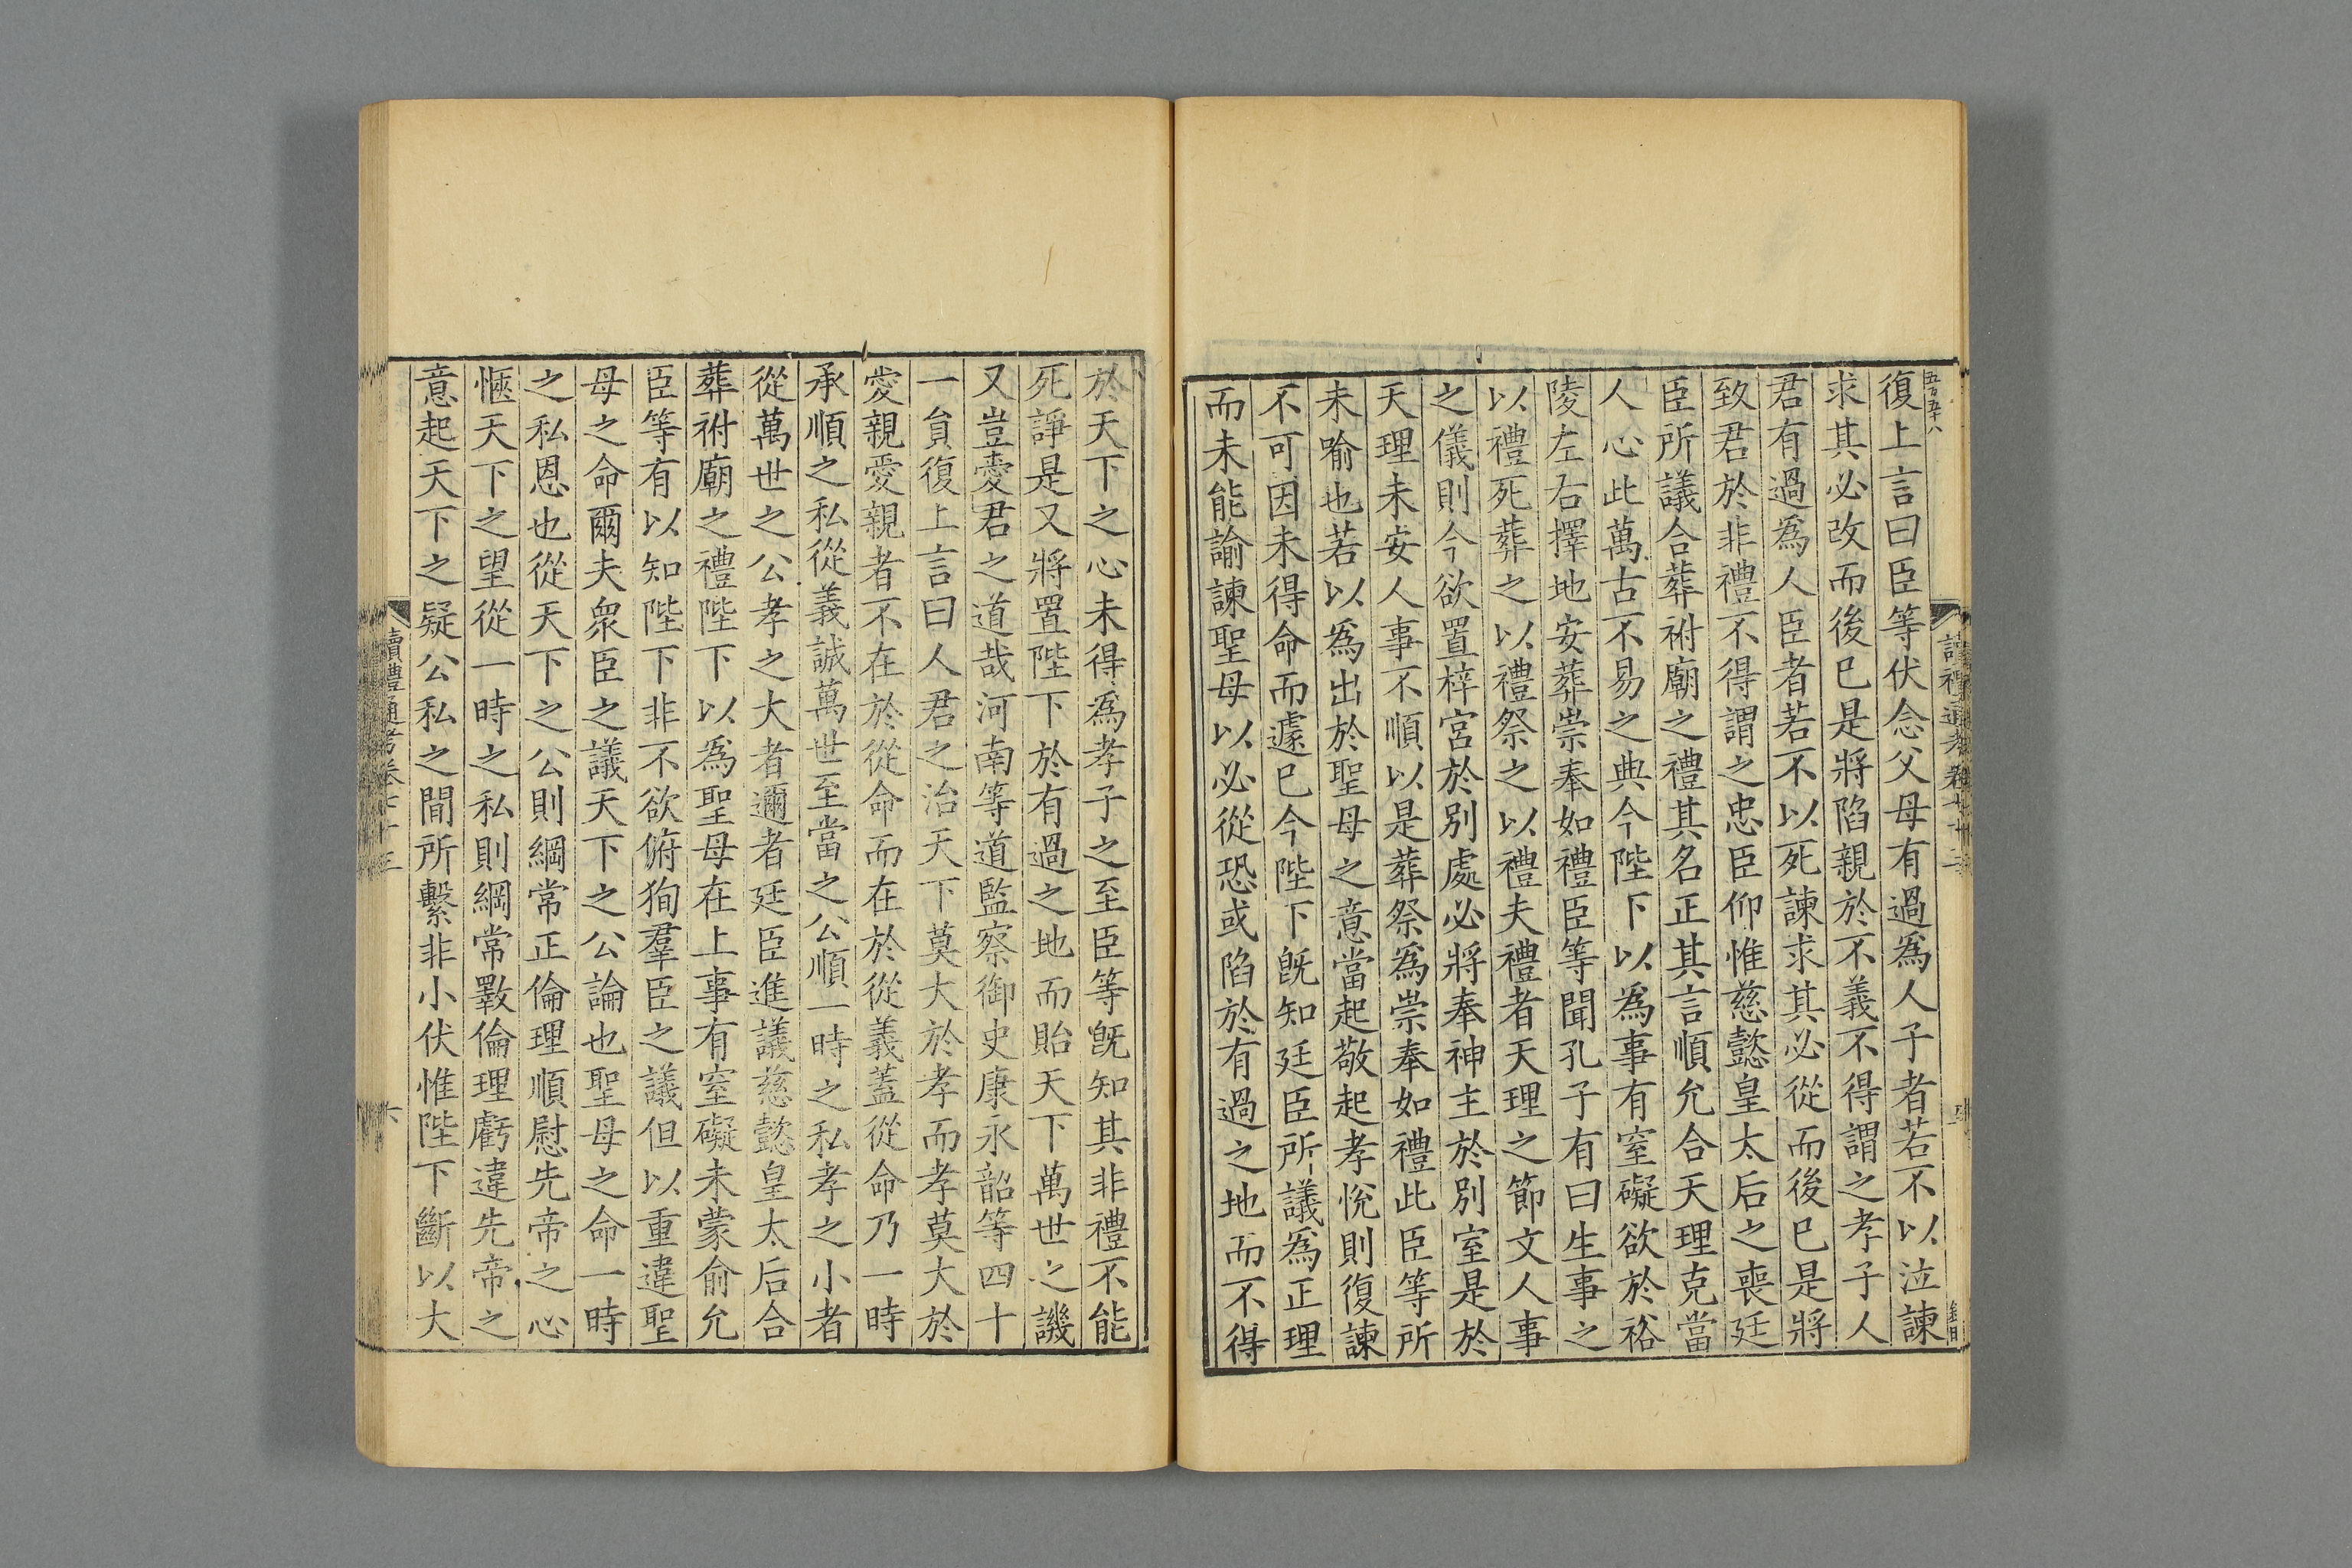 五百五十八
復上言曰臣等伏念父母有過爲人子者若不以泣諫
求其必改而後已是將陷親於不義不得謂之孝子人
君有過爲人臣者若不以死諫求其必從而後已是將
致君於非禮不得謂之忠臣仰惟慈懿皇太后之喪廷
臣所議合葬祔廟之禮其名正其言順允合天理克當
人心此萬古不易之典今陛下以爲事有窒礙欲於裕
陵左右擇地安葬崇奉如禮臣等聞孔子有曰生事之
以禮死葬之以禮祭之以禮夫禮者天理之節文人事
之儀則今欲置梓宮於別處必將奉神主於別室是於
天理未安人事不順以是葬祭爲崇奉如禮此臣等所
未喻也若以爲出於聖母之意當起敬起孝悅則復諫
不可因未得命而遽已今陛下旣知廷臣所議爲正理
而未能諭諫聖母以必從恐或陷於有過之地而不得
於天下之心未得爲孝子之至臣等旣知其非禮不能
死諍是又將置陛下於有過之地而貽天下萬世之譏
又豈愛君之道哉河南等道監察御史康永韶等四十
一負復上言曰人君之治天下莫大於孝而孝莫大於
愛親愛親者不在於從命而在於從義蓋從命乃一時
承順之私從義誠萬世至當之公順一時之私孝之小者
從萬世之公孝之大者邇者廷臣進議慈懿皇太后合
葬祔廟之禮陛下以爲聖母在上事有窒礙未蒙俞允
臣等有以知陛下非不欲俯狥羣臣之議但以重違聖
母之命爾夫衆臣之議天下之公論也聖母之命一時
之私恩也從天下之公則綱常正倫理順慰先帝之心
愜天下之望從一時之私則綱常斁倫理虧違先帝之
意起天下之疑公私之間所繫非小伏惟陛下斷以大
讀禮通考卷七十三
六